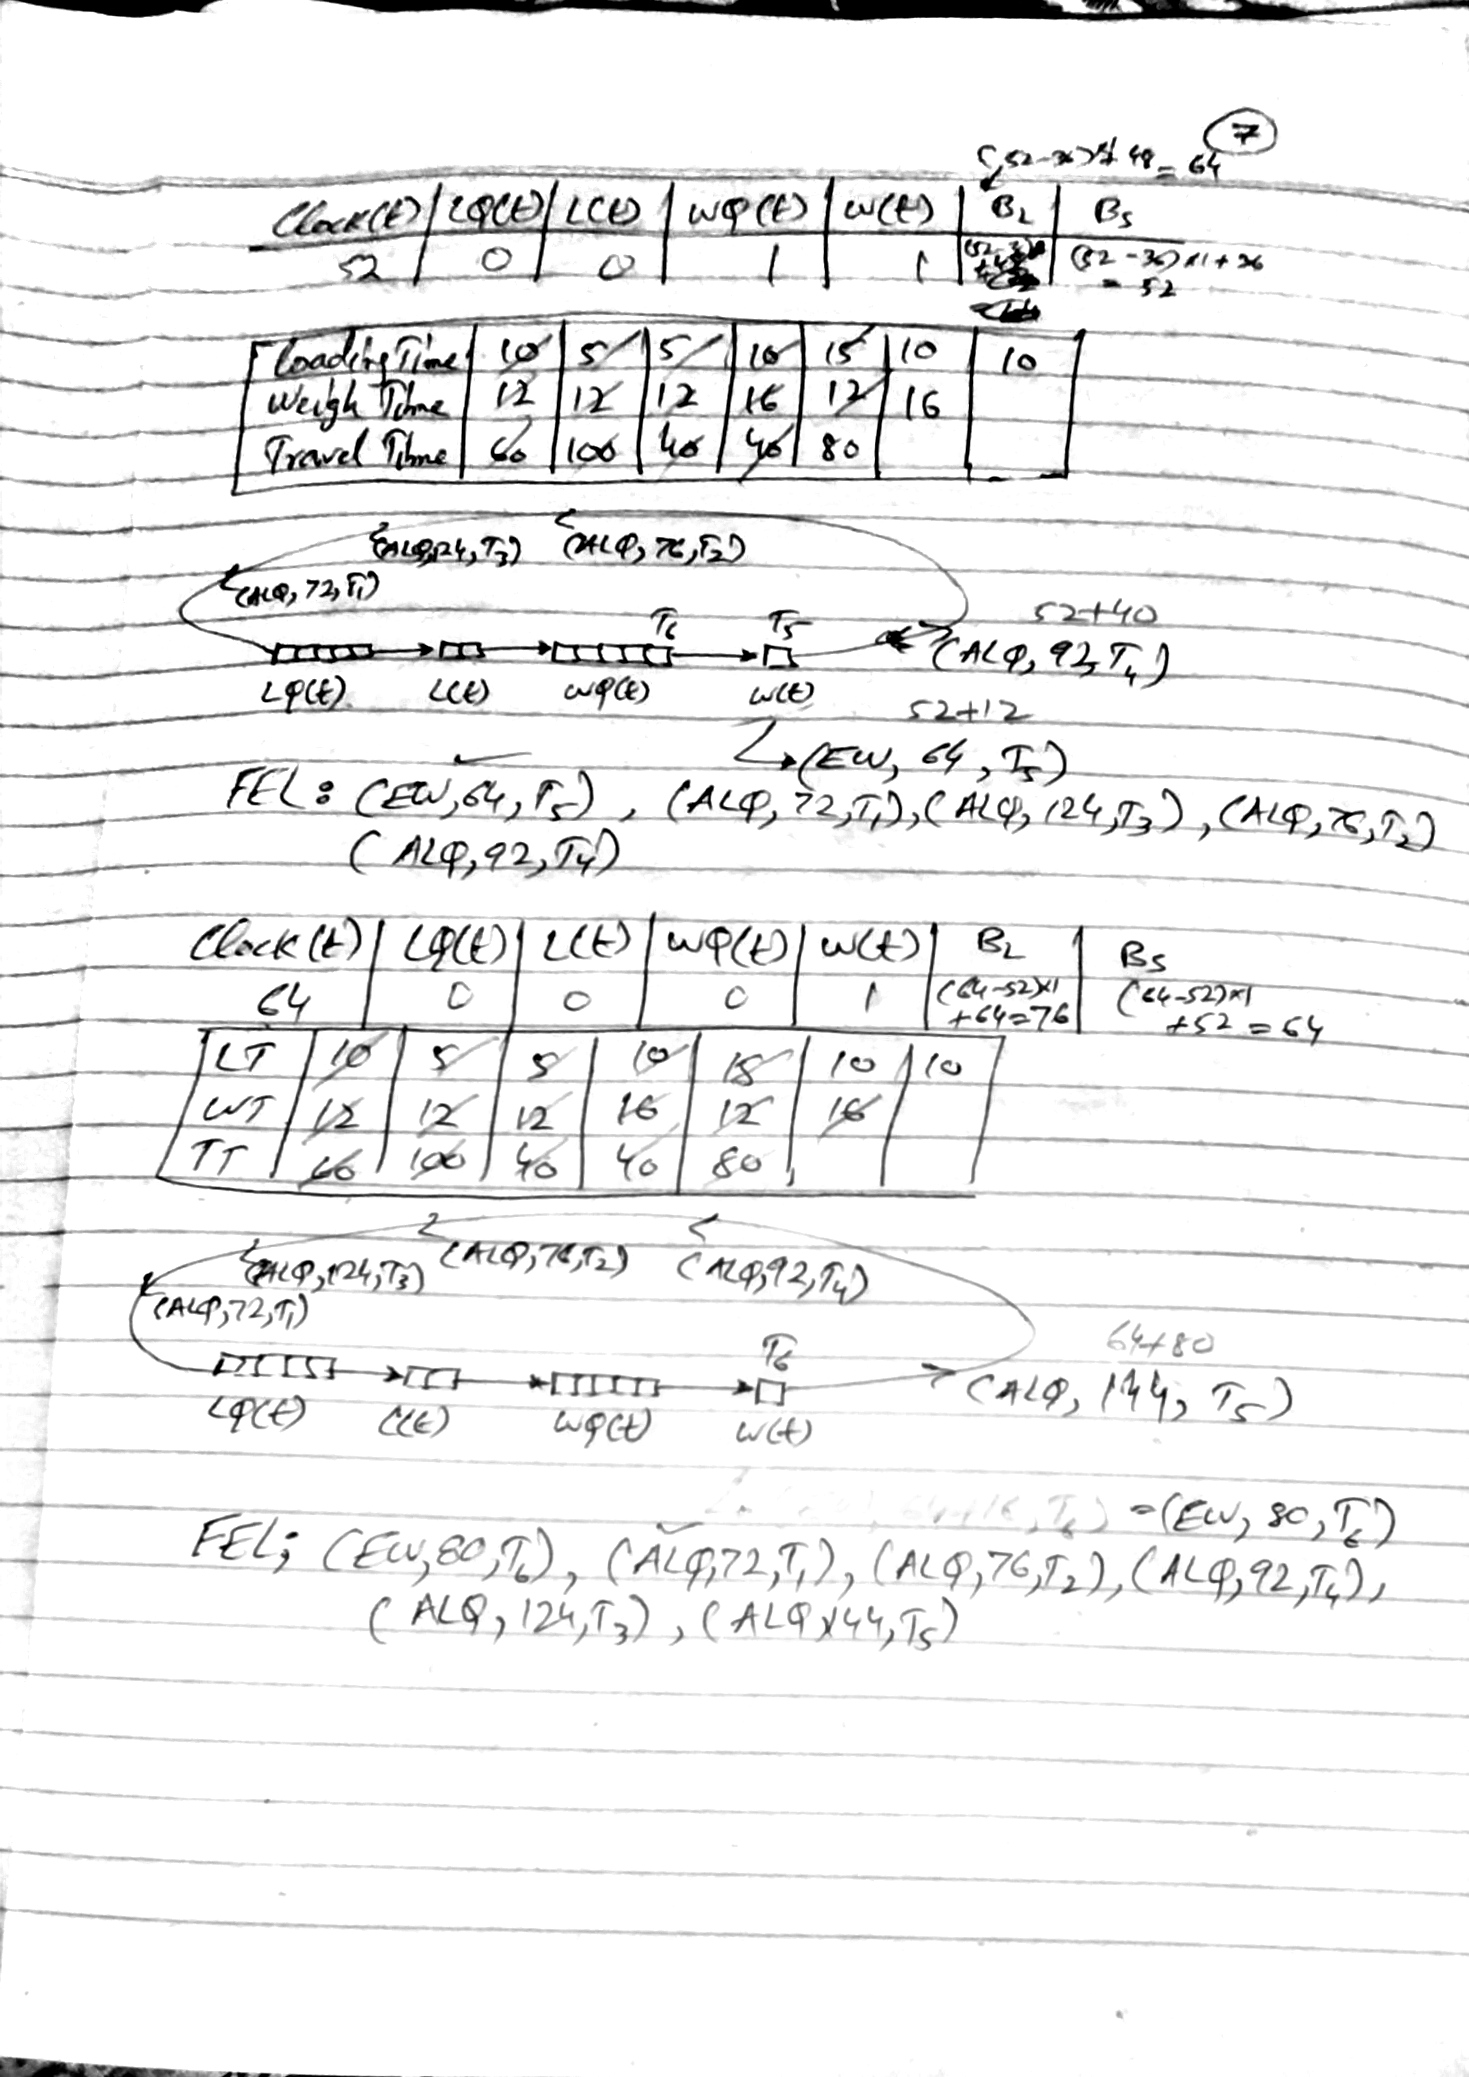 7
(52-36)×1+48=64
Clock(t) LQ(t) L(t) WQ(t) W(t) BL BS
52 0 0 1 1 (52-36)×1+36
= 52
Loading Time 10 5 5 10 15 10 10
Weigh Time 12 12 12 16 12 16
Travel Time 60 100 40 40 80
(ALQ,124,T3) (ALQ, 76,T2)
(ALQ, 72,T1)
52+40
T6 T5 (ALQ, 92,T4)
LQ(t) L(t) WQ(t) W(t)
52+12
(EW, 64, T5)
FEL: (EW,64,T5), (ALQ,72,T1),(ALQ,124,T3),(ALQ,76,T2)
(ALQ,92,T4)
Clock(t) LQ(t) L(t) WQ(t) W(t) BL BS
64 0 0 0 1 (64-52)×1 (64-52)×1
+64=76 +52=64
LT 10 5 5 10 15 10 10
WT 12 12 12 16 12 16
TT 60 100 40 40 80
(ALQ,124,T3) (ALQ,76,T2) (ALQ,92,T4)
(ALQ,72,T1)
64+80
T6 (ALQ, 144, T5)
LQ(t) L(t) WQ(t) W(t)
=(EW, 80,T6)
FEL; (EW,80,T6), (ALQ,72,T1), (ALQ,76,T2),(ALQ,92,T4),
(ALQ,124,T3),(ALQ,144,T5)